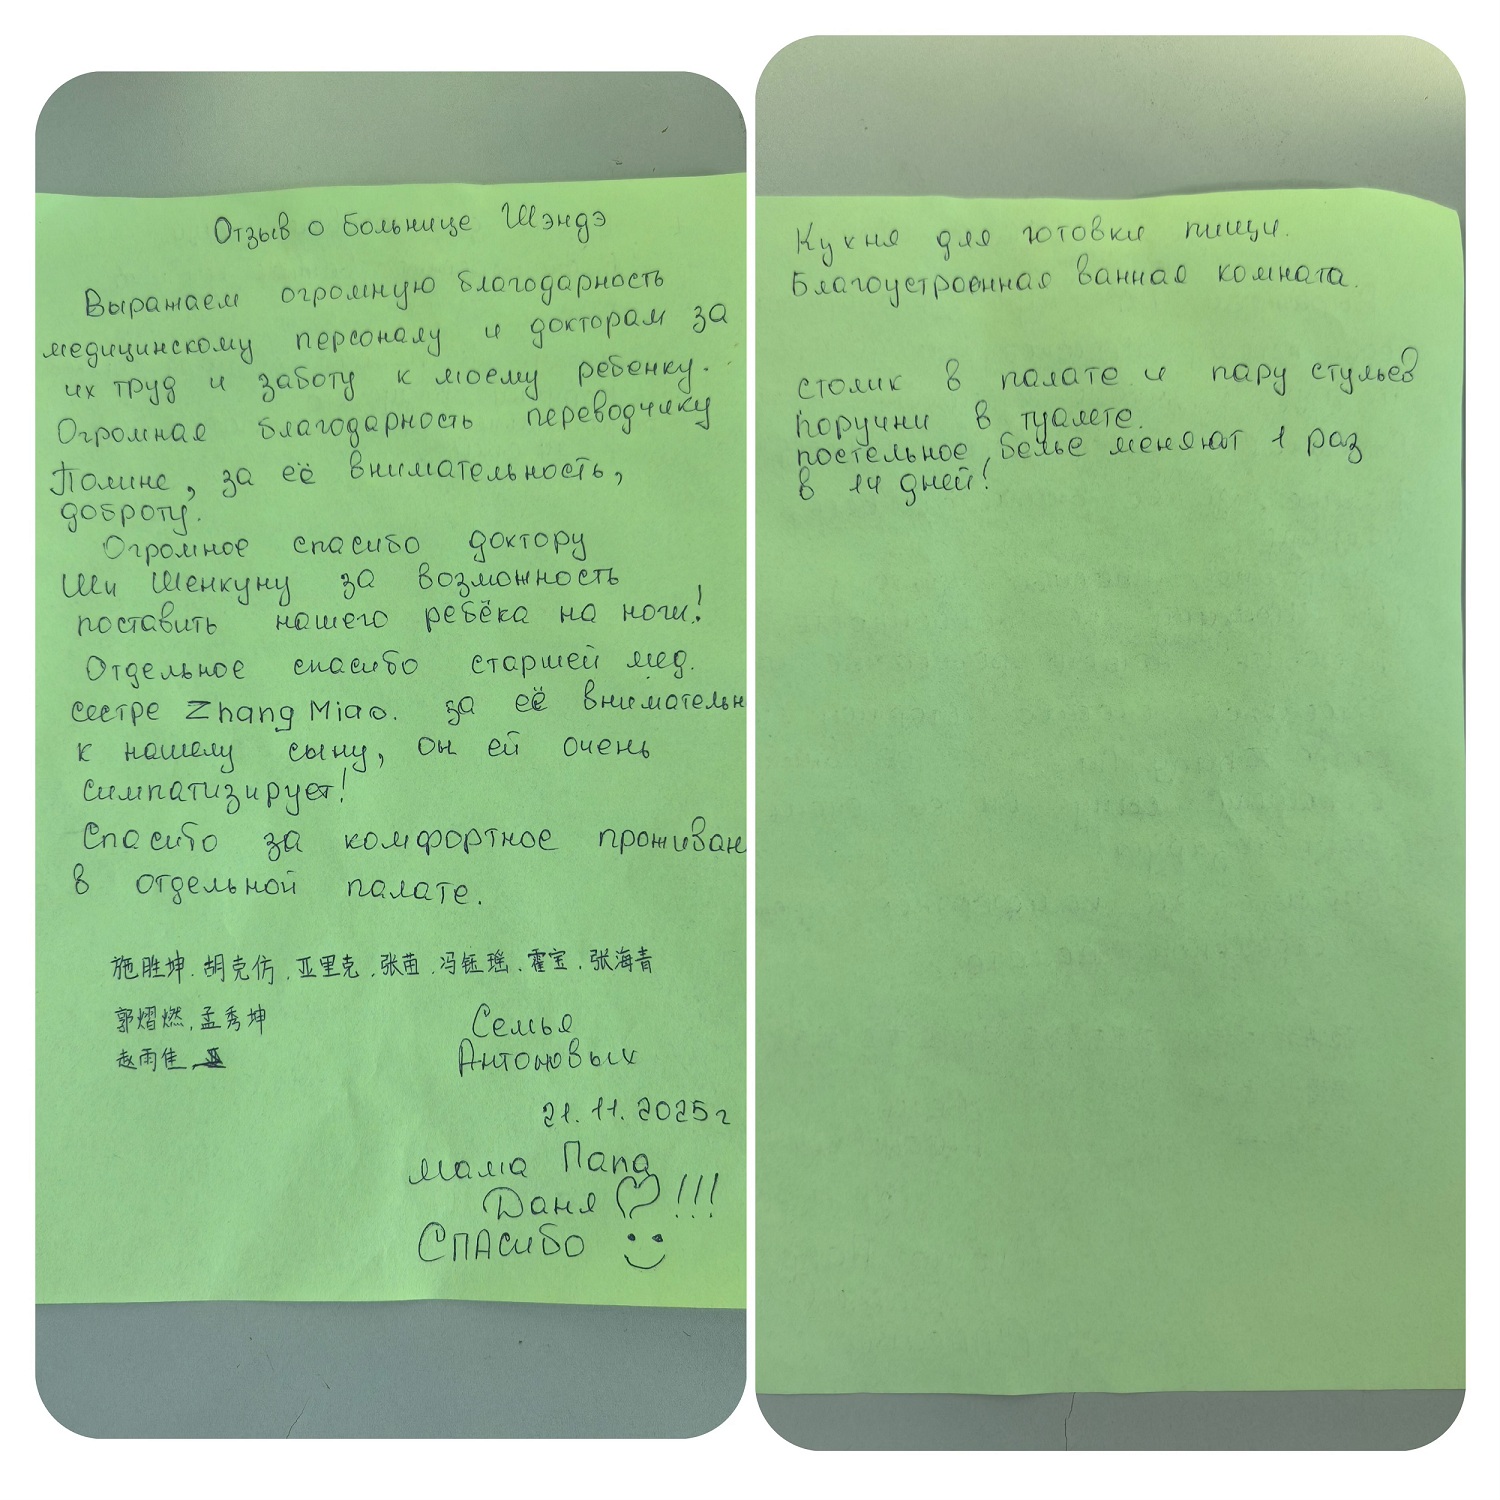 Отзыв о больнице Шэндэ
Выражаем огромную благодарность
медицинскому персоналу и докторам за
их труд и заботу к моему ребенку.
Огромная благодарность переводчику
Полине, за её внимательность,
доброту.
Огромное спасибо доктору
Ши Шенкуну за возможность
поставить нашего ребёка на ноги!
Отдельное спасибо старшей мед.
сестре Zhang Miao. за её внимательн
к нашему сыну, он ей очень
симпатизирует!
Спасибо за комфортное проживан
в отдельной палате.
施胜坤.胡克仿.亚里克.张苗.冯钰瑶.霍宝.张海青
郭熠燃.孟秀坤
赵雨佳
Семья
Антоновых
21.11.2025г
мама Папа
Даня !!!
Спасибо
Кухня для готовки пищи.
Благоустроенная ванная комната.
столик в палате и пару стульев
поручни в туалете.
постельное белье меняют 1 раз
в 14 дней!